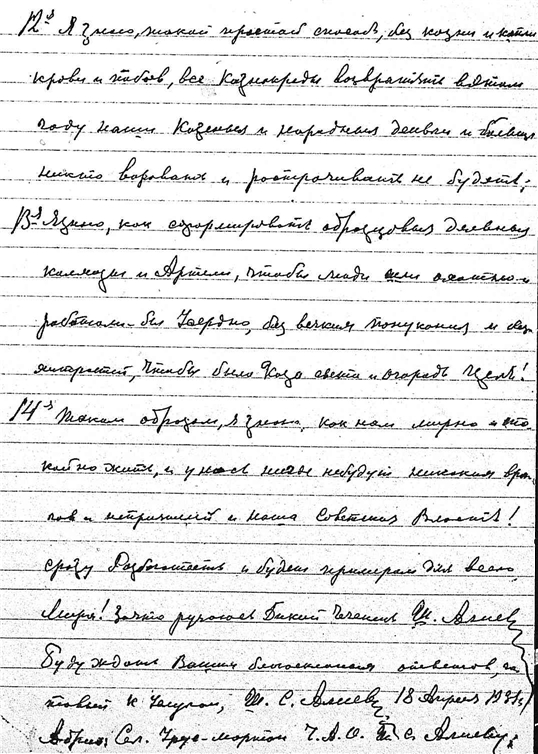 12-ꙗ Я знаю, такой простой способ, без казни и капли
крови и побой, все Казнокрады возвратить в этом
году наши Казенные и народные деньги и больше
никто воровать и растрачивать не будеть;
13-ꙗ Я знаю, как сформировать образцовых дельных
колхозы и Артели, чтобы люди шли охотно и
работали-бы Усердно, без всяких понукания и без
хитростей, чтобы было Коза сыта и огородъ целъ!
14-ꙗ Таким образом, я знаю, как нам мирно и спо-
койно жить, и у насъ небудут никоким вра-
гов и неприятелей и наша Советская Власть!
сразу Разбогатеть и будет примером для всего
Мира! За что ручаюсь Дикий Чеченец Ш. Алиев
Буду ждать Ваших благосклонных ответов, го-
товый к Услугам, Ш. С. Алиев 18 Апреля 1931г.
Адрес: Сел. Урус-мартан Ч.А.О. Ш. С. Алиеву.